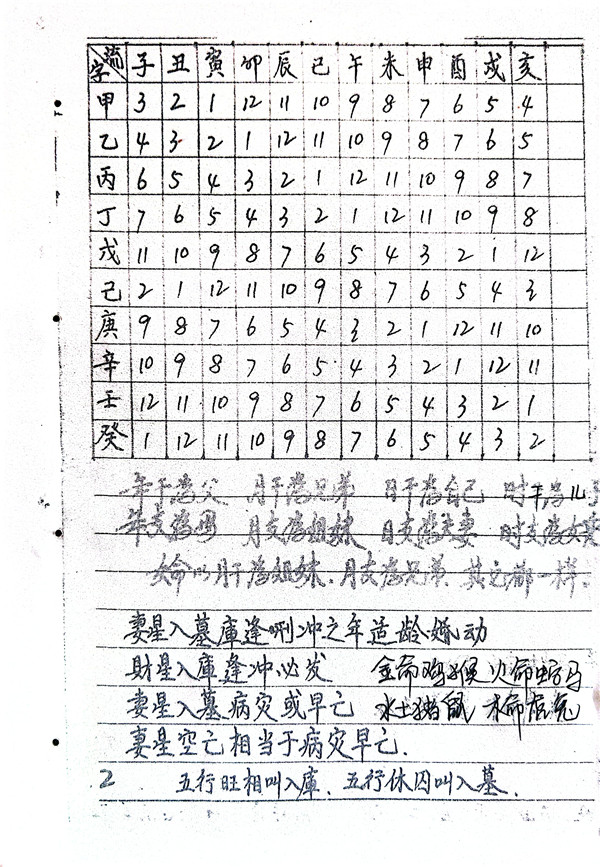 字流 子 丑 寅 卯 辰 巳 午 未 申 酉 戌 亥
甲 3 2 1 12 11 10 9 8 7 6 5 4
乙 4 3 2 1 12 11 10 9 8 7 6 5
丙 6 5 4 3 2 1 12 11 10 9 8 7
丁 7 6 5 4 3 2 1 12 11 10 9 8
戊 11 10 9 8 7 6 5 4 3 2 1 12
己 2 1 12 11 10 9 8 7 6 5 4 3
庚 9 8 7 6 5 4 3 2 1 12 11 10
辛 10 9 8 7 6 5 4 3 2 1 12 11
壬 12 11 10 9 8 7 6 5 4 3 2 1
癸 1 12 11 10 9 8 7 6 5 4 3 2
年干為父 月干為兄弟 日干為自己 时干為儿子
年支為母 月支為姐妹 日支為夫妻 时支為女
女命以月干為姐妹.月支為兄弟.其它都一样.
妻星入墓庫逢刑冲之年适龄婚动
財星入庫逢冲必发 金命鸡猴 火命蛇马
妻星入墓病灾或早亡 水土猪鼠 木命虎兔
妻星空亡相当于病灾早亡.
2 五行旺相叫入庫.五行休囚叫入墓.